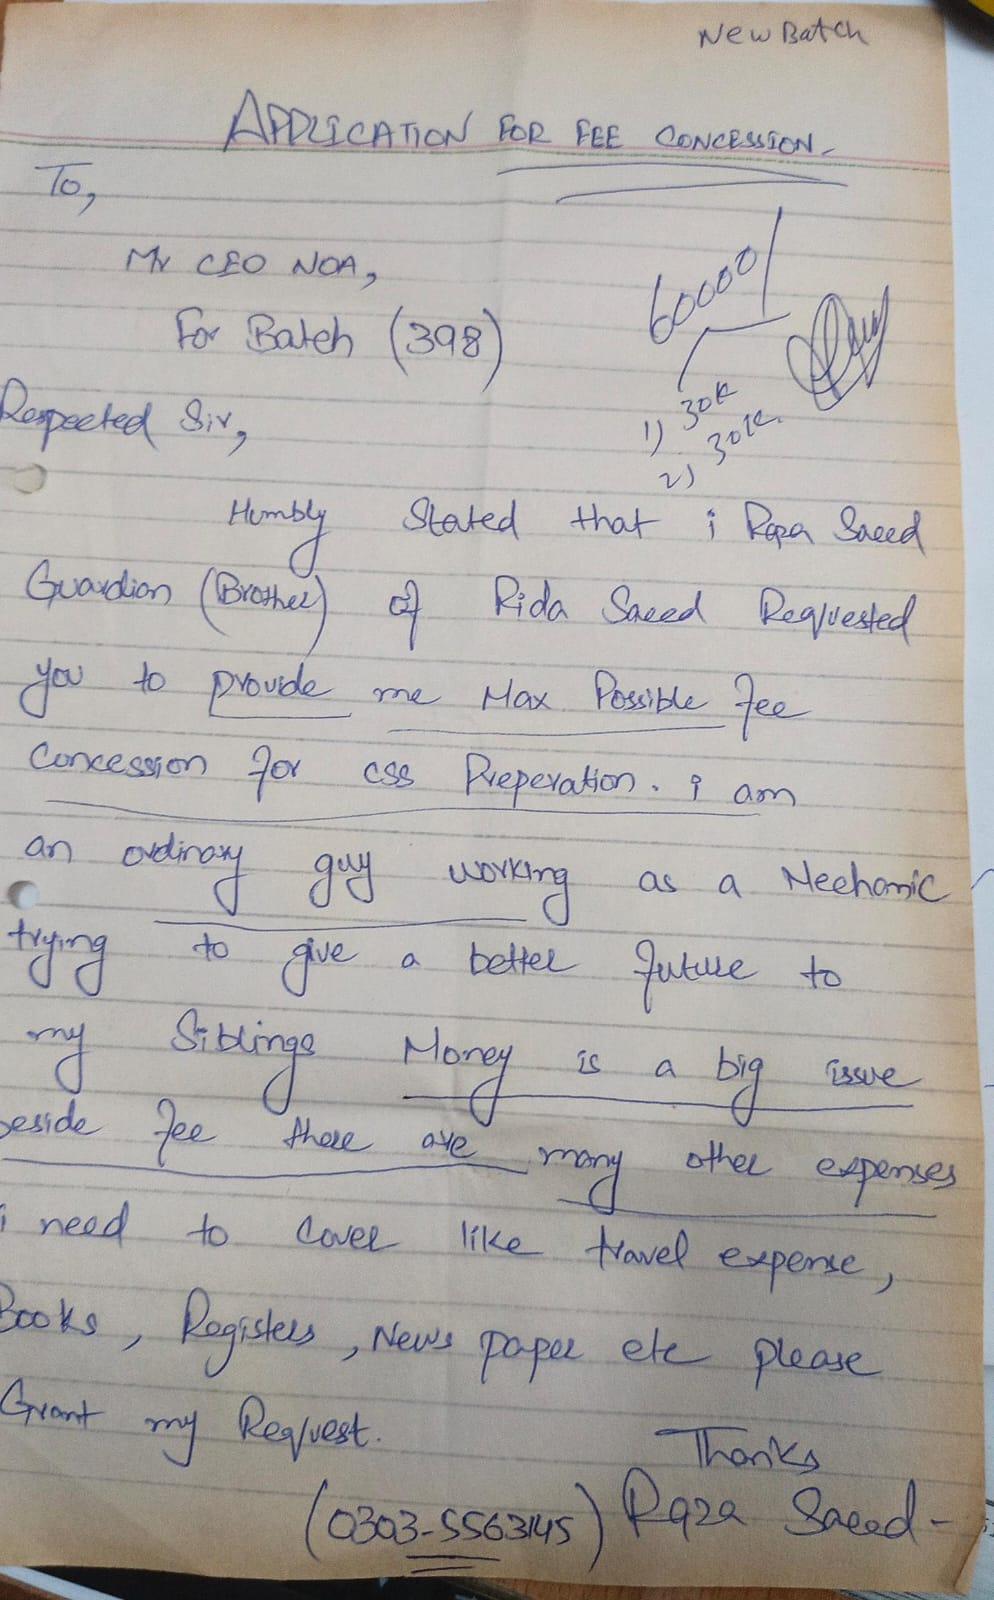 New Batch
APPLICATION FOR FEE CONCESSION.
To,
Mr CEO NOA,
60000/
For Batch (398)
1) 30k
Respected Sir,
2) 30k.
Humbly Stated that i Raza Saeed
Guardian (Brother) of Rida Saeed Requested
you to provide me Max Possible fee
Concession for css Preperation. i am
an ordinary guy working as a Mechanic
trying to give a better future to
my Siblings Money is a big issue
beside fee there are many other expenses
i need to cover like travel expense,
Books, Registers, News paper etc please
Grant my Request.
Thanks
(0303-5563145) Raza Saeed-